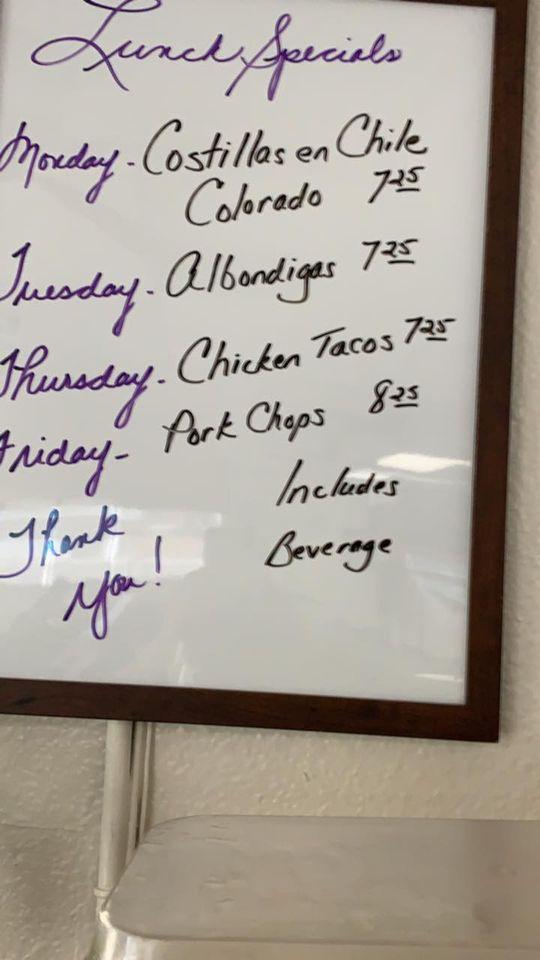 Lunch Specials
Monday - Costillas en Chile
Colorado 7.25
Tuesday - Albondigas 7.25
Thursday - Chicken Tacos 7.25
Friday - Pork Chops 8.25
Includes
Beverage
Thank
You!